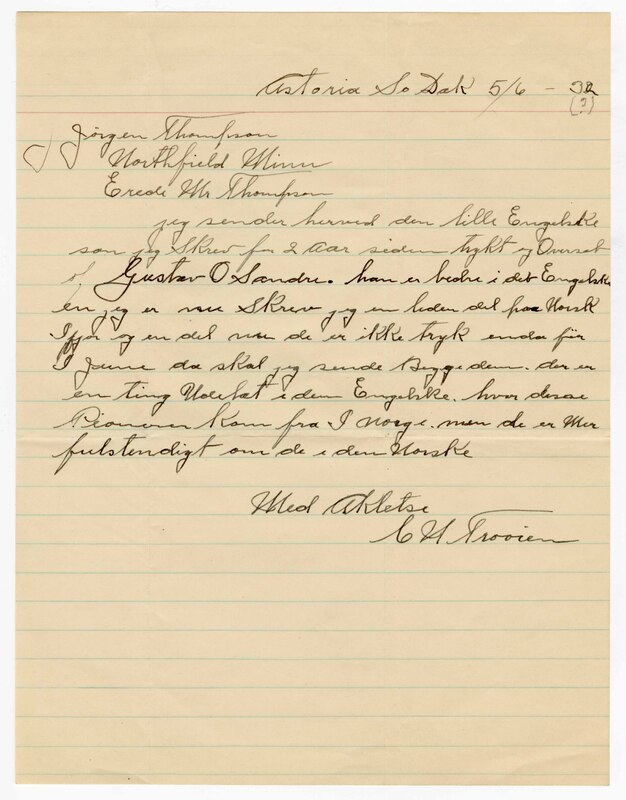 Astoria So Dak 5/6 - 32
(?)
Jörgen Thompson
Northfield Minn
Erede Mr Thompson
jeg sender herved den lille Engelske
som jeg Skrev for 2 Aar siden trykt og Oversat
af Gustav O Sandro. han er bedre i det Engelske
en jeg er nu Skrev jeg en liden del paa Norsk
I fjor og en del nu de er ikke tryk enda för
I June da skal jeg sende Beggedem. der er
en ting Udelat i den Engelske. hvor disse
Pionerer kom fra I Norge. men de er Mer
fulstendigt om de i den Norske
Med Akletse
C H Trooien